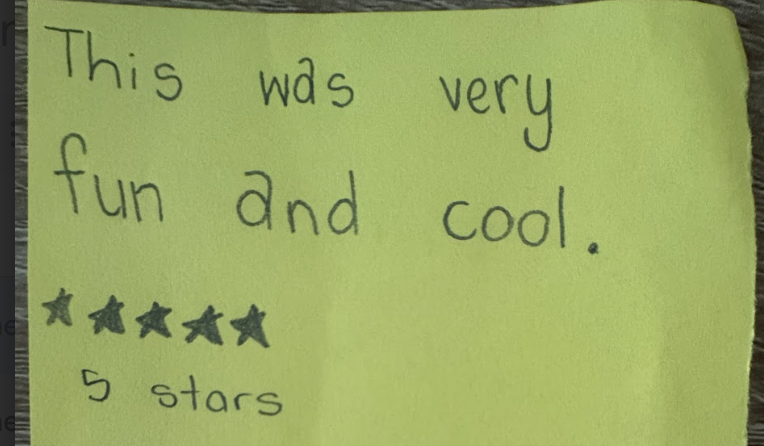 This was very
fun and cool.
★★★★★
5 stars